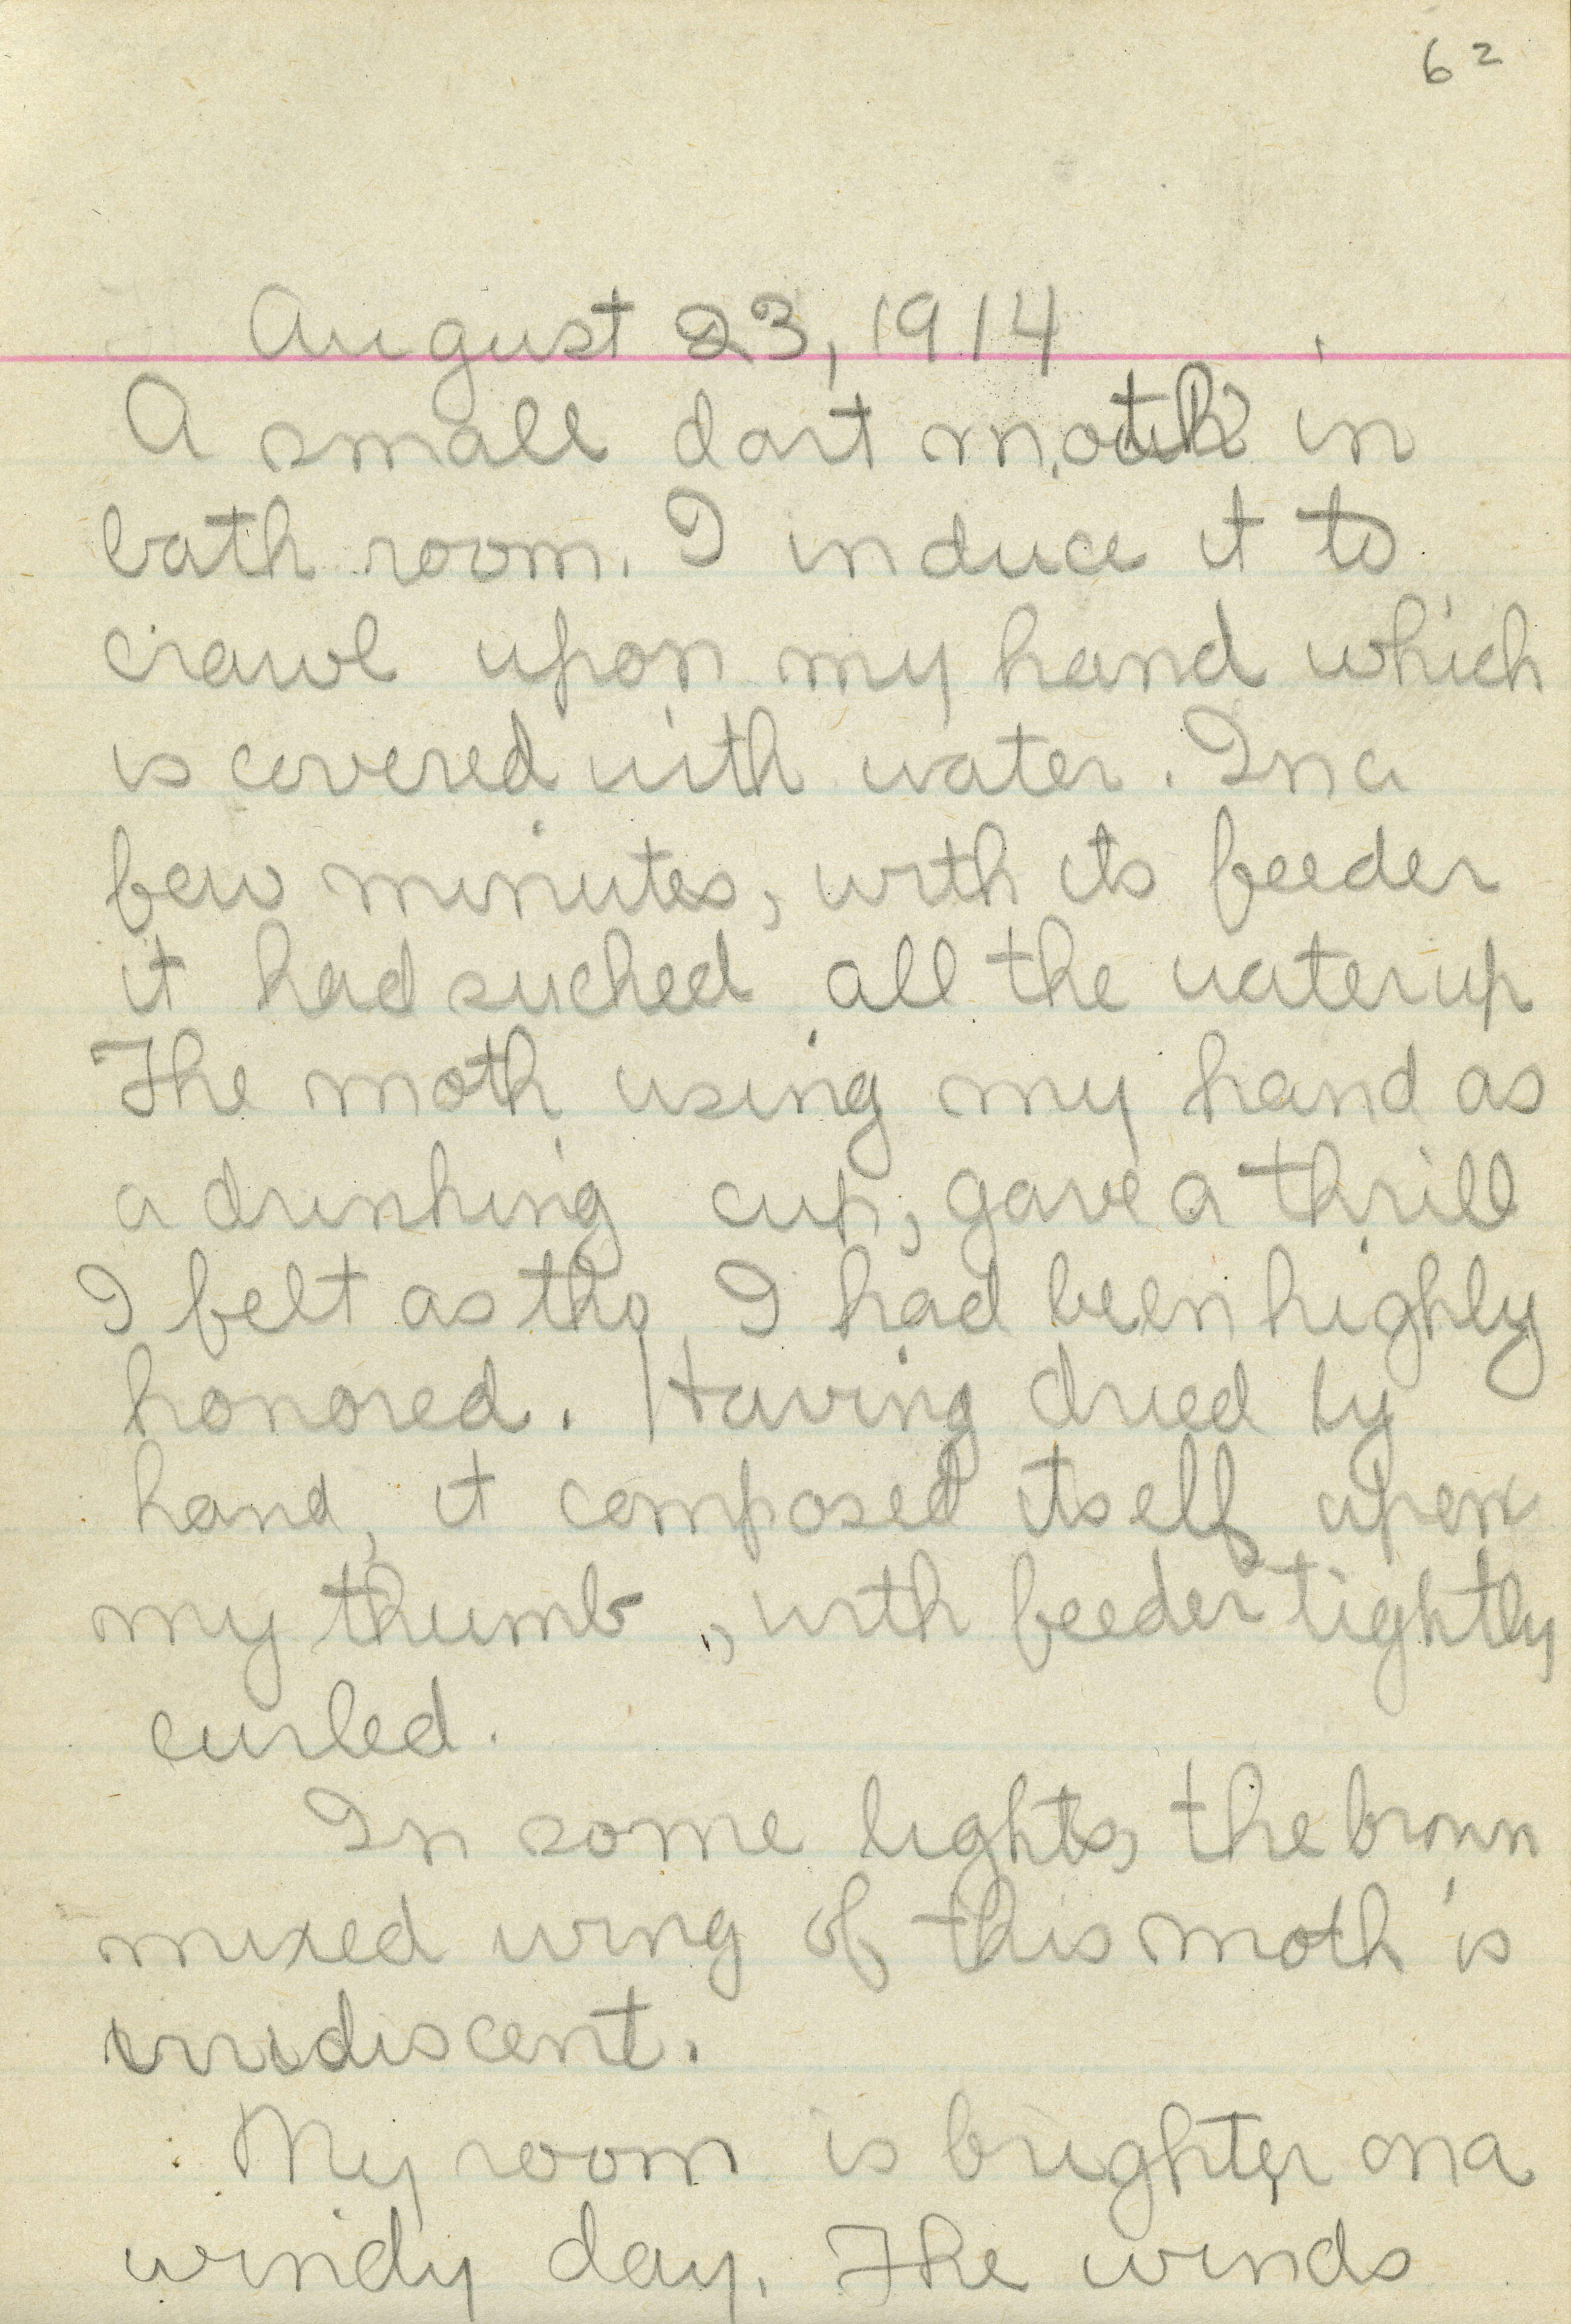 62
August 23, 1914
A small dart moth in
bath room. I induce it to
crawl upon my hand which
is covered with water. In a
few minutes, with its feeder
it had sucked all the water up
The moth using my hand as
a drinking cup, gave a thrill
I felt as tho I had been highly
honored. Having dried by
hand, it composed itself upon
my thumb, with feeder tightly
curled.
In some lights, the brown
mixed wing of this moth is
irridiscent.
My room is brighter on a
windy day. The winds